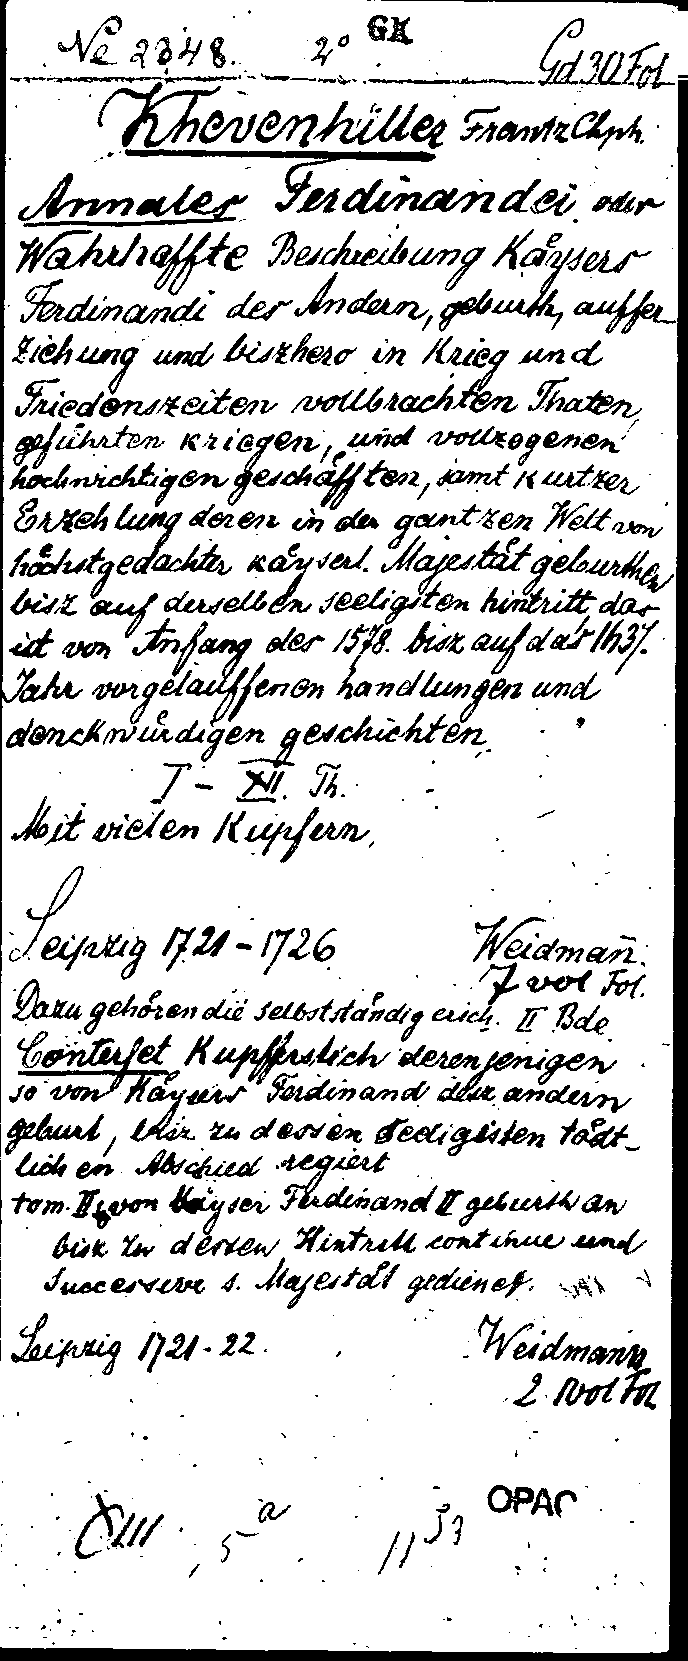 Ne 2348. 2° GK Gd 30 Fol
Khevenhiller Frantz Chph.
Annales Ferdinandei oder
Wahrhaffte Beschreibung Kaÿsers
Ferdinandi des Andern, geburth, auffer-
ziehung und biszhero in Krieg und
Friedenszeiten vollbrachten Thaten,
geführten kriegen, und vollzogenen
hochwichtigen geschäfften, samt kurtzer
Erzehlung deren in der gantzen Welt von
höchstgedachter kaÿserl. Majestät geburthen
bisz auf derselben seeligsten hintritt das
ist von Anfang des 1578. bisz auf das 1637.
Jahr vorgelauffenen handlungen und
denckwürdigen geschichten.
I - XII. Th.
Mit vielen Kupfern.
Leipzig 1721-1726 Weidmañ.
7 vol Fol.
Dazu gehören die selbstständig ersch. II Bde
Conterfet Kupfferstich deren jenigen
so von Käysers Ferdinand desz andern
geburt, bisz zu dessen seeligsten tödt-
lichen Abschied regiert
tom. II von Käyser Ferdinand II geburth an
bisz zu dessen Hintritt continue und
successive s. Majestät gedienet.
Leipzig 1721-22. Weidmann
2 vol Fol
XIII 5 a 11 53 OPAC